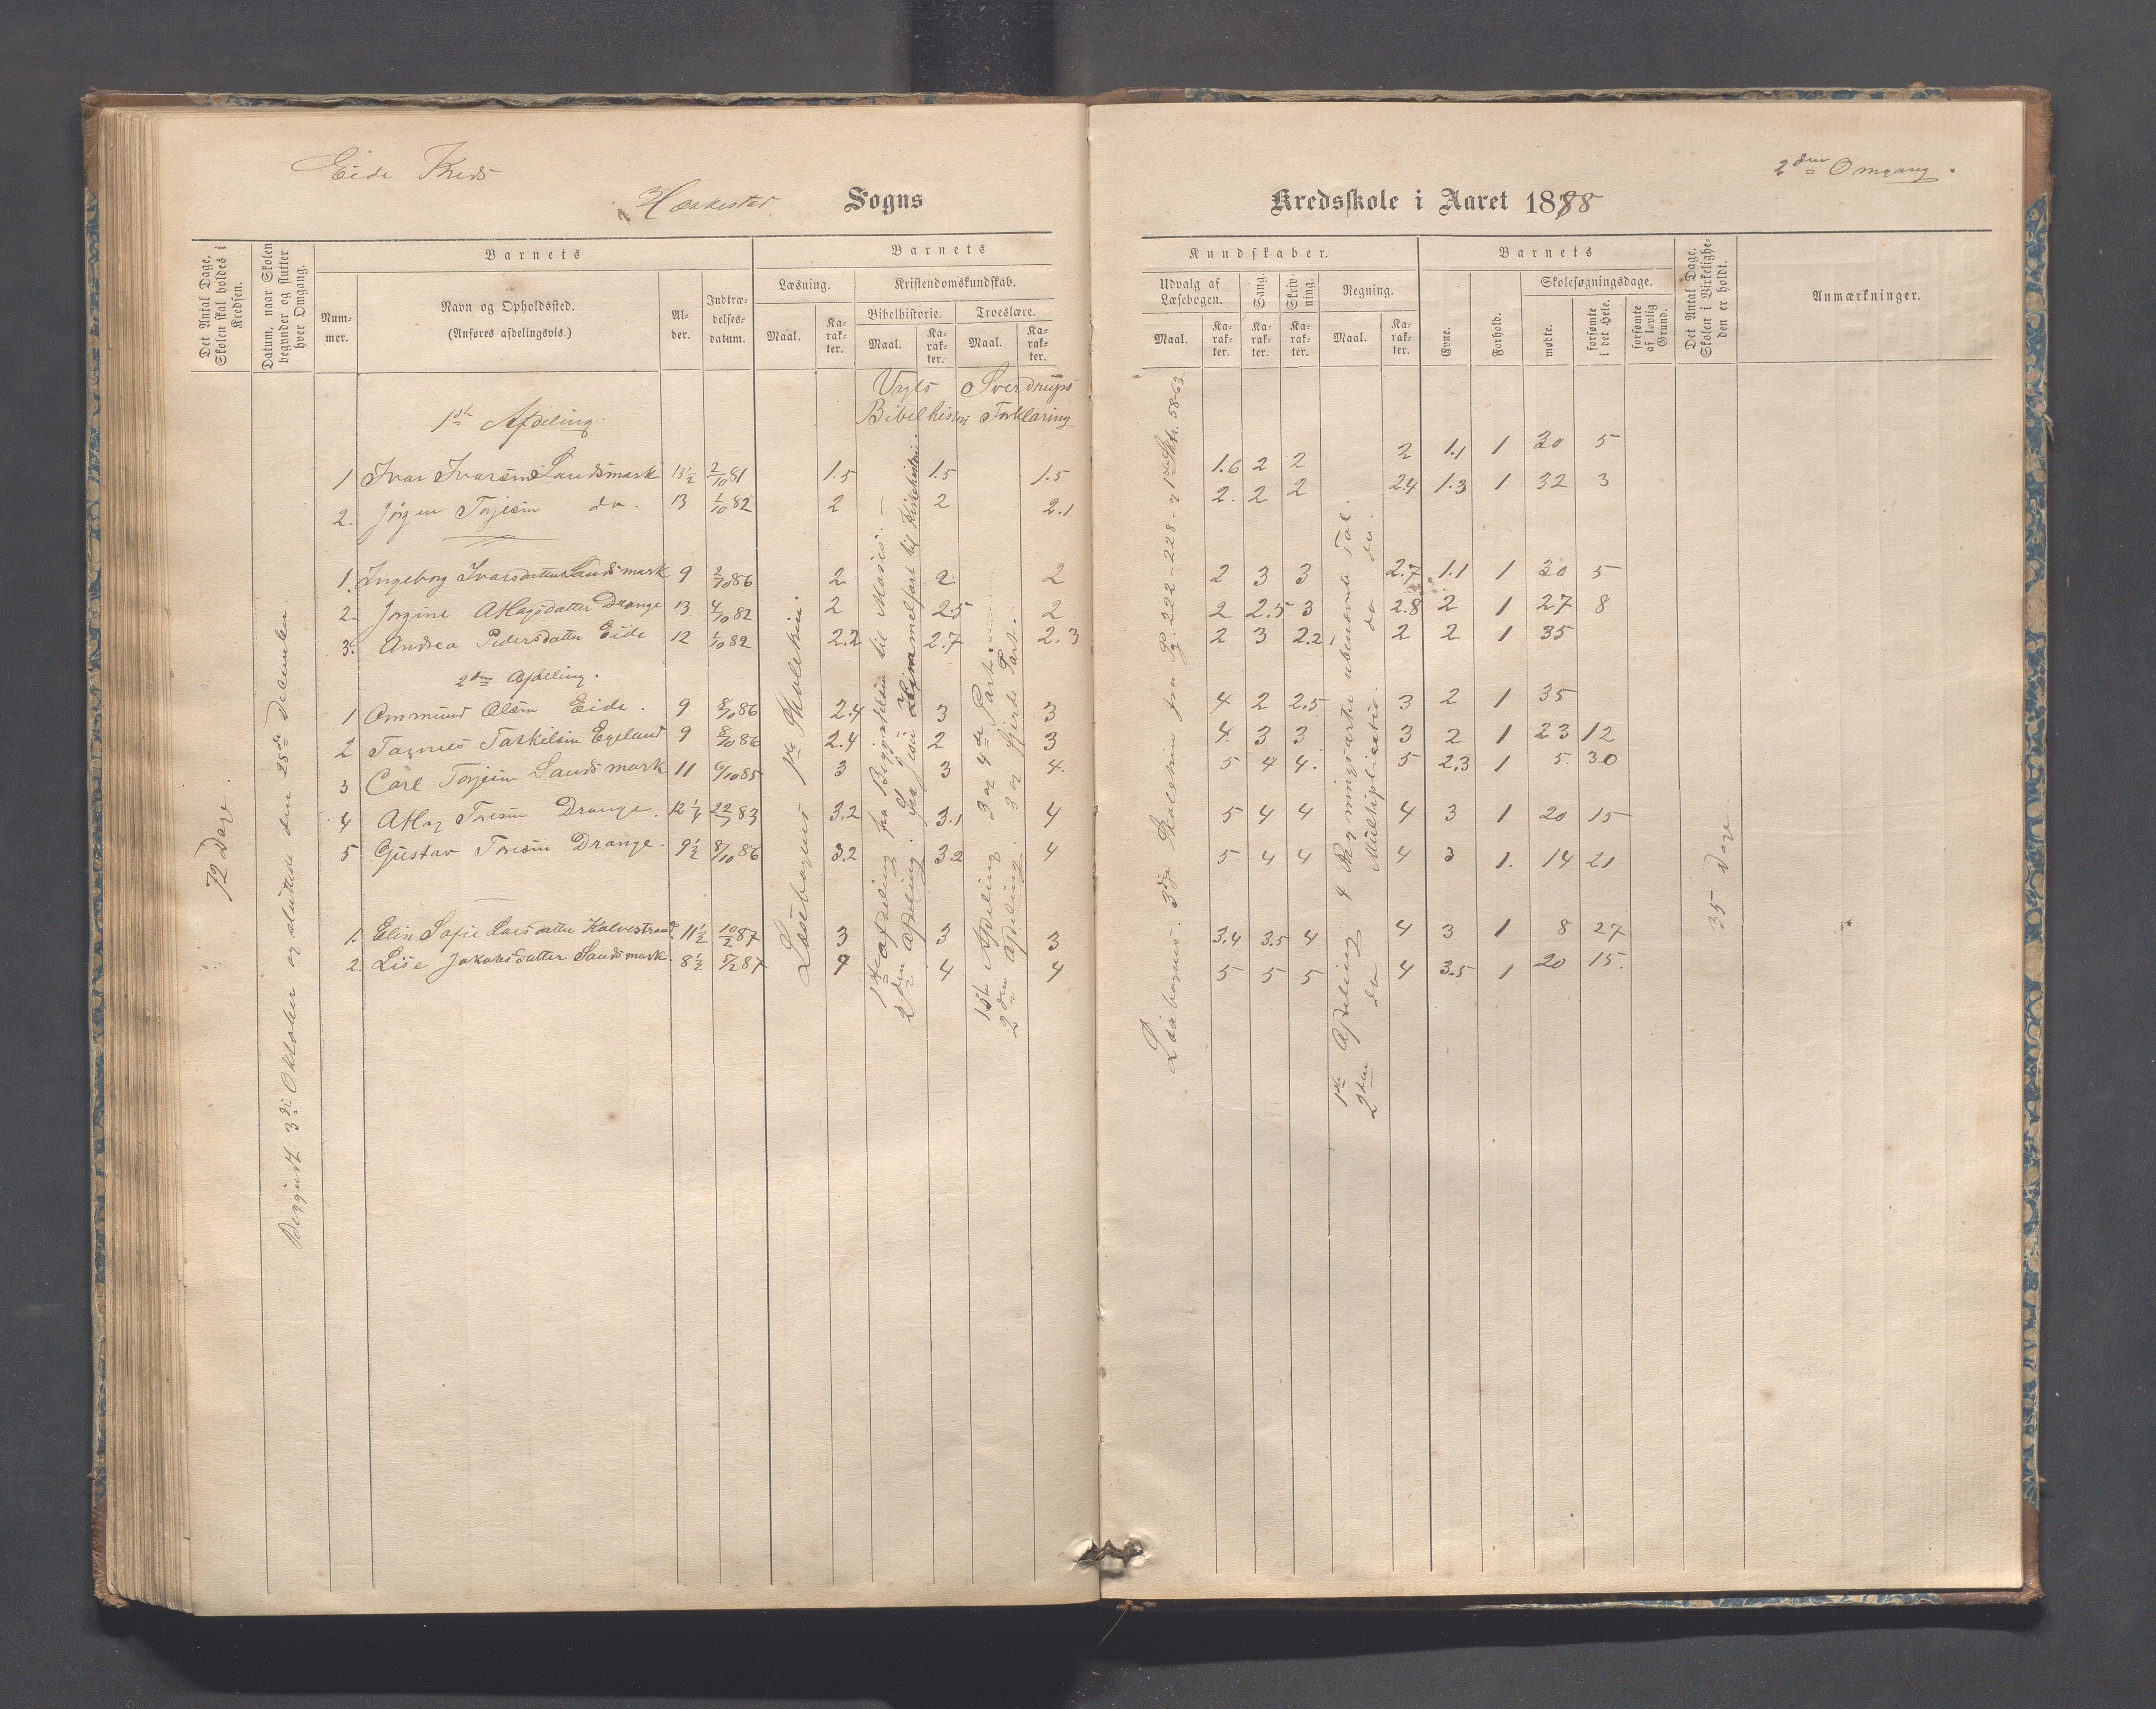 Eide Kreds
Sogns
Kredsskole i Aaret 1888
2den Omgang.
Det Antal Dage, Skolen skal holdes i Kredsen.
Datum, naar Skolen begynder og slutter hver Omgang.
Barnets
Nummer.
Navn og Opholdssted.
(Anføres afdelingsvis.)
Alder.
Indtrædelsesdatum.
Barnets
Læsning.
Maal.
Karakter.
Kristendomskundskab.
Bibelhistorie.
Maal.
Karakter.
Troeslære.
Maal.
Karakter.
Kundskaber.
Udvalg af Læsebogen.
Maal.
Karakter.
Sang.
Karakter.
Skrivning.
Karakter.
Regning.
Maal.
Karakter.
Barnets
Evne.
Forhold.
Skolesøgningsdage.
mødte.
forsømte i det Hele.
forsømte af lovlig Grund.
Det Antal Dage, Skolen i Virkeligheden er holdt.
Anmærkninger.
Vogts Sverdrups
Bibelhistorie Forklaring
1ste Afdeling.
1 Ivar Ivarsen Sandsmark 13½ 2/10 81 1.5 1.5 1.5 1.6 2 2 2 1.1 1 30 5
2. Jørgen Torjesen do. 13 1/10 82 2 2 2.1 2. 2 2 2.4 1.3 1 32 3
1. Ingeborg Ivarsdatter Sandsmark 9 2/10 86 2 2 2 2 3 3 2.7 1.1 1 30 5
2. Jorgine Atlagsdatter Drange 13 4/10 82 2 2.5 2 2 2.5 3 2.8 2 1 27 8
3. Andrea Pedersdatter Eide 12 1/10 82 2.2 2.7 2.3 2 3 2.2 2 2 1 35
2den Afdeling.
1 Ommund Olsen Eide. 9 8/10 86 2.4 3 3 4 2 2.5 3 2 1 35
2 Tarkilsen Egeland 9 8/10 86 2.4 2 3 4. 3 3 3 2 1 23 12
3 Carl Torjesen Sandsmark 11 6/10 85 3 3 4. 5 4 4. 5 2.3 1 5. 30
4 Atlag Toresen Drange. 12¼ 22/7 83 3.2 3.1 4 5 4 4 4 3 1 20 15
5 Gustav Toresen Drange. 9½ 8/10 86 3.2 3.2 4 5 4 4 4 3 1. 14 21
1. Elin Sofie Larsdatter Kalvestrand. 11½ 10/2 87 3 3 3 3.4 3.5 4 4 3 1 8 27
2. Lise Jakobsdatter Sandsmark. 8½ 5/2 87 4 4 4 5 5 5 4 3.5 1 20 15.
72 Dage.
Begyndt 3die Oktober og sluttede den 28de December.
Læsebogens 1ste Skoletrin.
1ste Afdeling fra Begyndelsen til Moses. —
2den Afdeling. fra Jesu Himmelfart til Kirkehistorie.
1ste Afdeling 3 og 4de Part.
2den Afdeling. 3 og fjerde Part.
Læsebogens 3die Skoletrin fra Pg. 222-228.
1ste Afdeling 4 Regningsarter ubenævnte Tal.
2den do Multiplication. do do.
35 Dage.